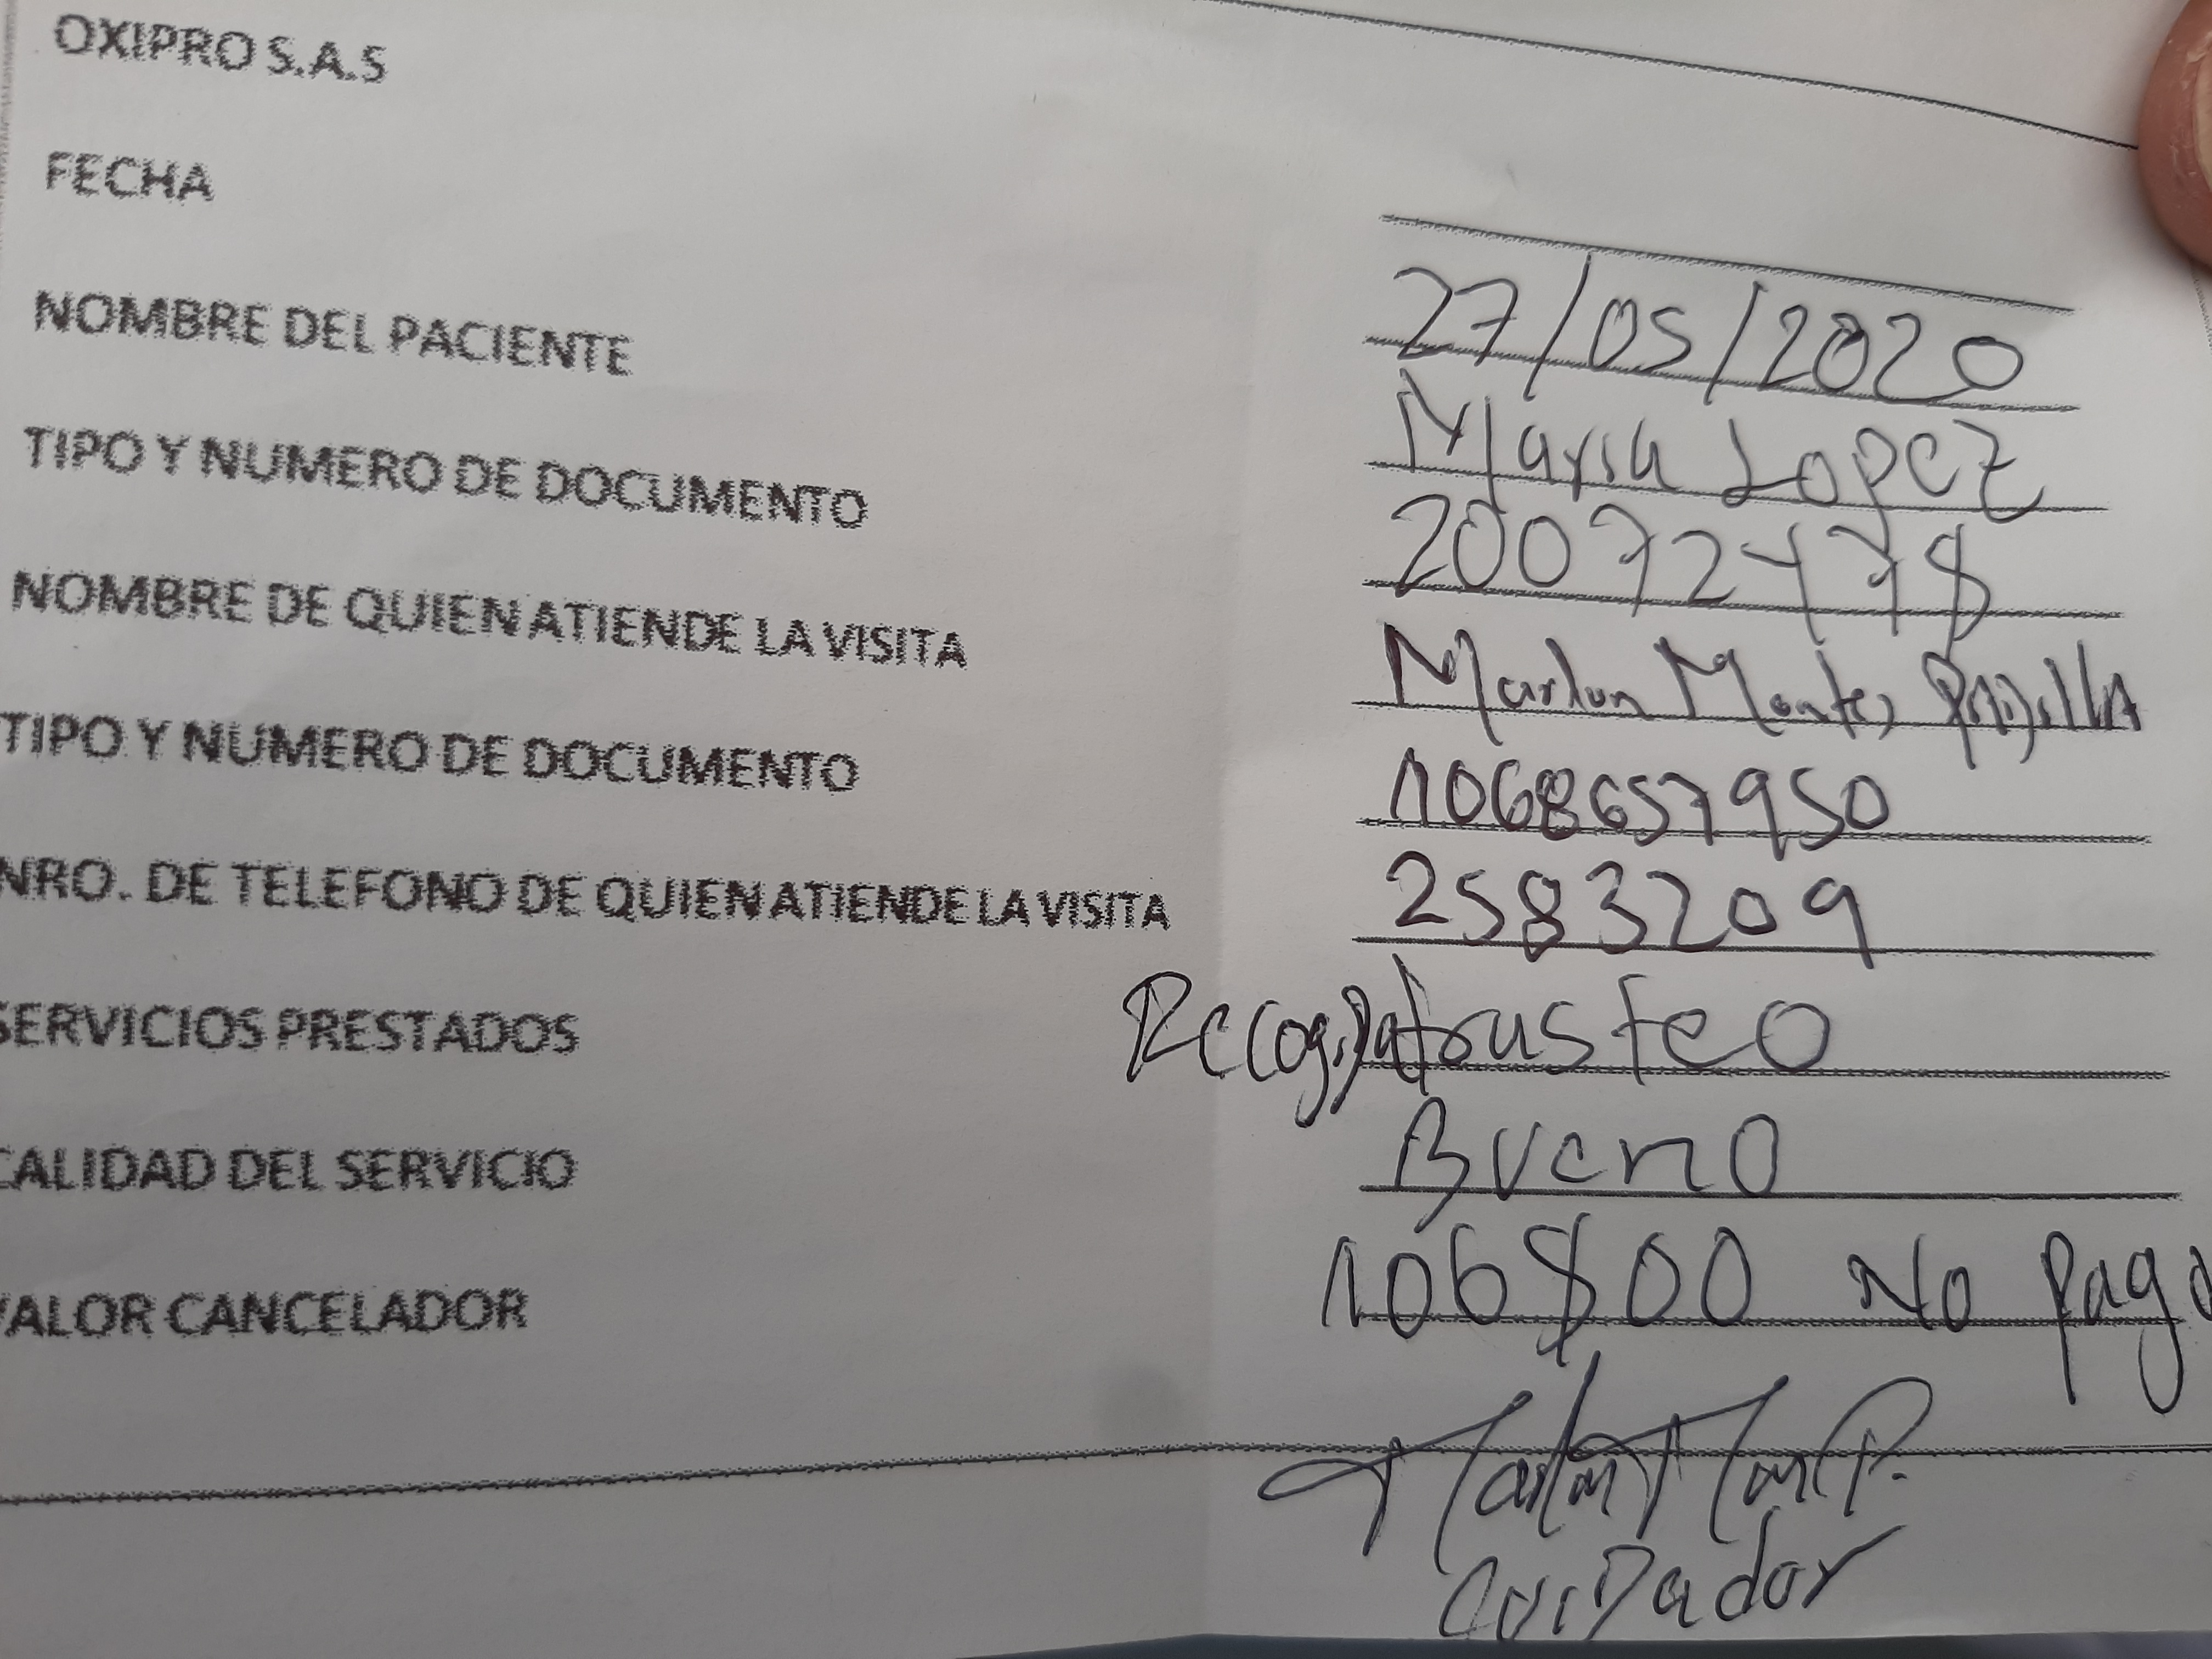 OXIPRO S.A.S
FECHA 27/05/2020
NOMBRE DEL PACIENTE Maria Lopez
TIPO Y NUMERO DE DOCUMENTO 20072478
NOMBRE DE QUIEN ATIENDE LA VISITA Marlon Montes Padilla
TIPO Y NUMERO DE DOCUMENTO 1068657950
NRO. DE TELEFONO DE QUIEN ATIENDE LA VISITA 2583209
SERVICIOS PRESTADOS Recogida trasteo
CALIDAD DEL SERVICIO Bueno
VALOR CANCELADOR 106800 No Pago
Marlon Mon P.
CuiDador